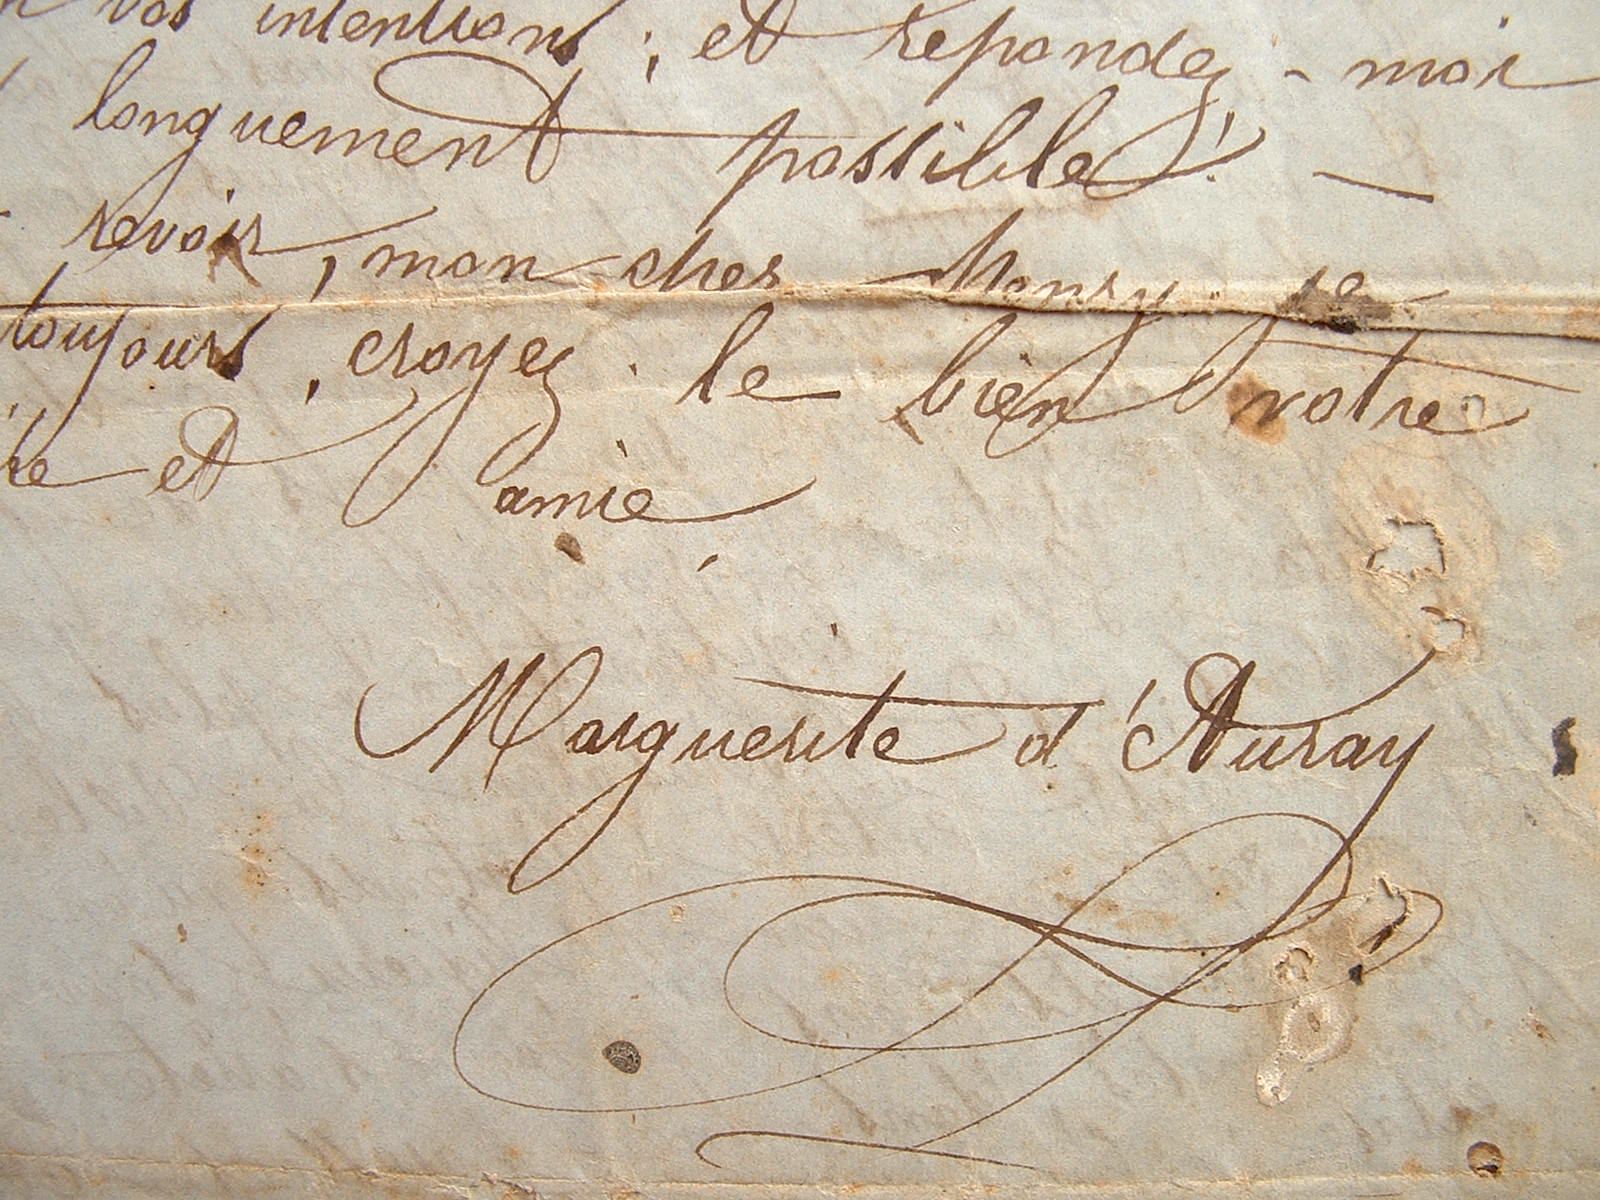 vos intentions ; et repondez - moi
longuement possible ! —
revoir, mon cher Henry, je
toujours, croyez - le bien votre
et amie
Marguerite d'Auray